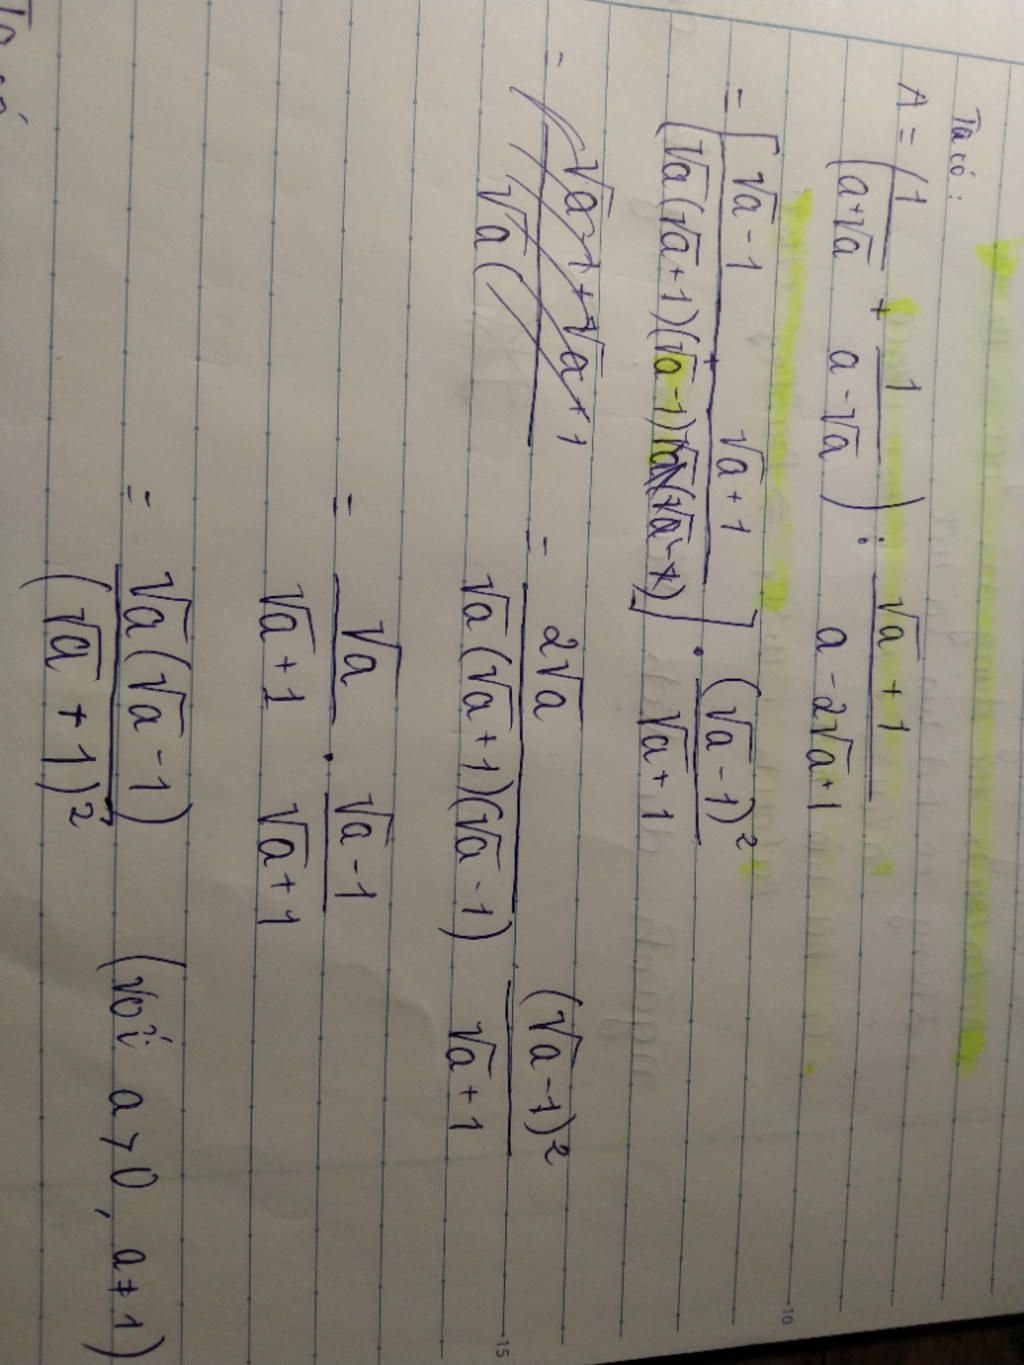 Ta có:
A = (1/(a+√a) + 1/(a-√a)) : (√a+1)/(a-2√a+1)
= [(√a-1)/(√a(√a+1)(√a-1)) + (√a+1)/] · (√a-1)²/(√a+1)
= (√a-1+√a+1)/(√a( = 2√a/(√a(√a+1)(√a-1)) · (√a-1)²/(√a+1)
= √a/(√a+1) · (√a-1)/(√a+1)
= √a(√a-1)/(√a+1)² (với a>0, a≠1)
Ta có
10
15